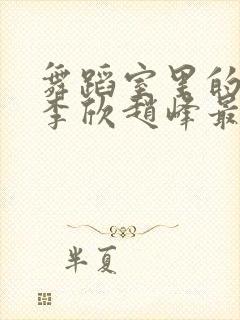 舞蹈室里的
李欣赵峰最
半夏